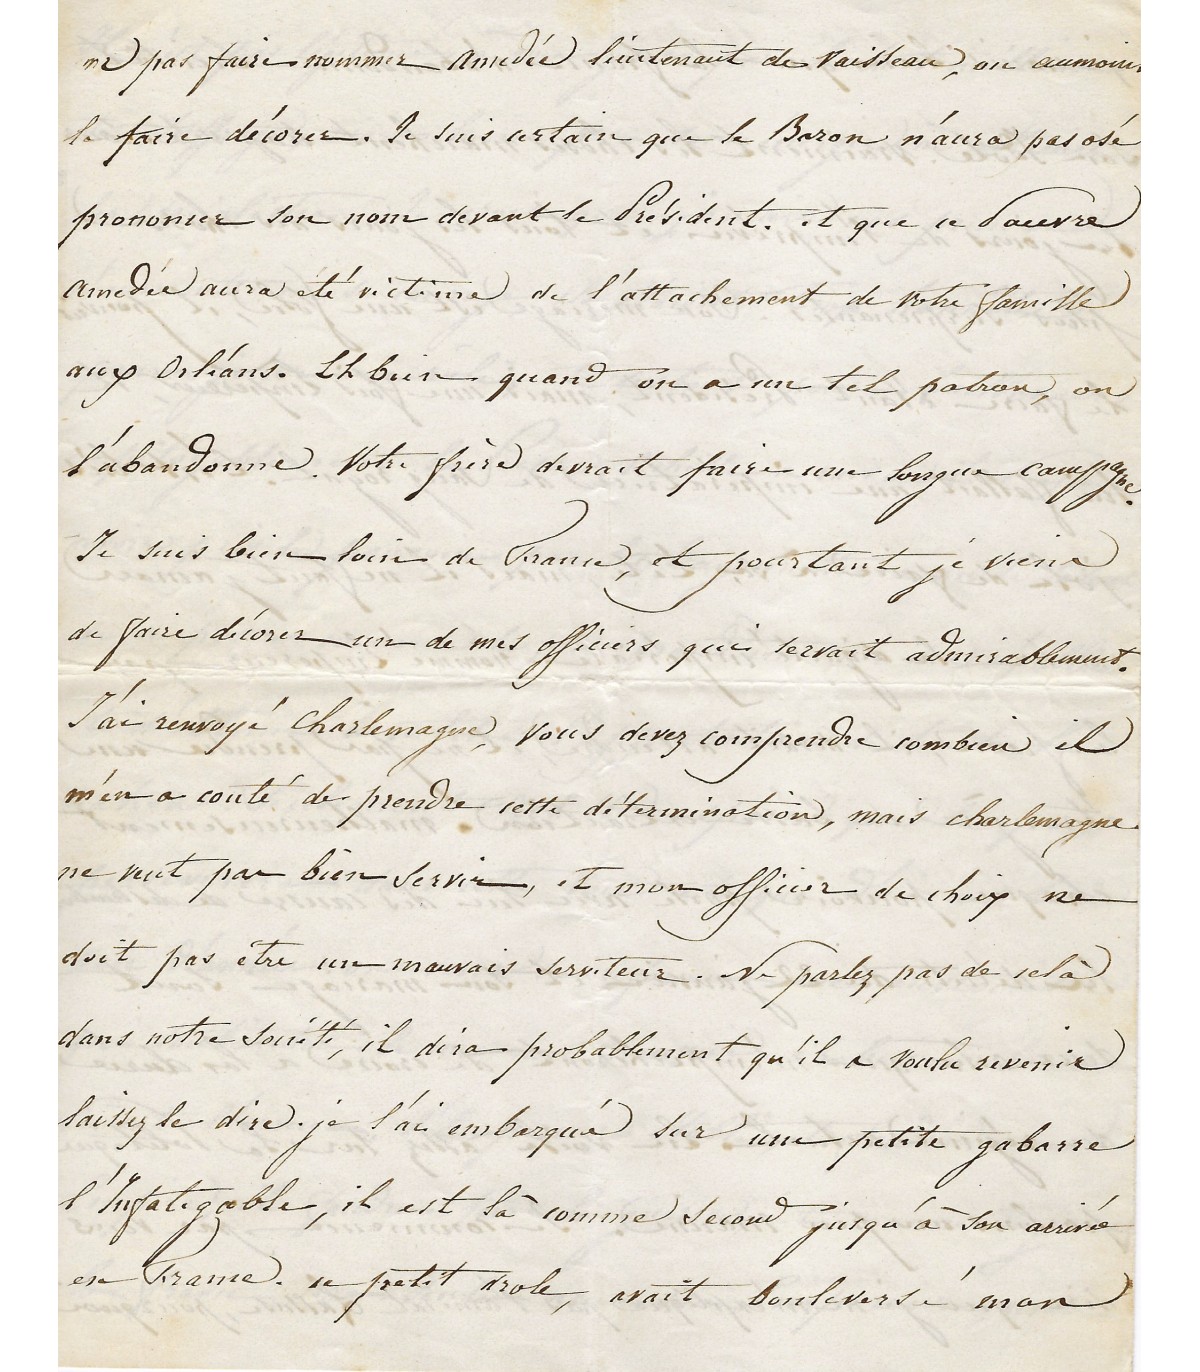 ne pas faire nommer Amedée lieutenant de Vaisseau, ou aumoins
le faire décorer. Je suis certain que le Baron n'aura pas osé
prononcer son nom devant le Président. et que ce Pauvre
Amedée aura été victime de l'attachement de votre famille
aux Orléans. Eh bien quand on a un tel patron, on
l'abandonne. Votre frère devrait faire une longue campagne.
Je suis bien loin de France, et pourtant je viens
de faire décorer un de mes officiers qui servait admirablement.
J'ai renvoyé Charlemagne, vous devez comprendre combien il
m'en a couté de prendre cette détermination, mais Charlemagne
ne veut pas bien servir, et mon officier de choix ne
doit pas etre un mauvais serviteur. Ne parlez pas de celà
dans notre société, il dira probablement qu'il a voulu revenir
laissez le dire. je l'ai embarqué sur une petite gabarre
l'Infatigable, il est là comme second jusqu'à son arrivée
en France. ce petit drole, avait bouleversé mon